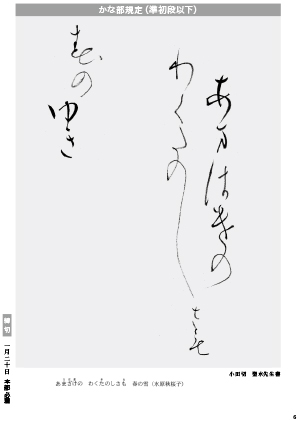 かな部規定（準初段以下）
あまざけの
わくたのし
さも
春の
ゆき
小田切　先生書
あまざけの　わくたのしさも　春の雪（水原秋桜子）
締切　一月二十日　本部必着
6